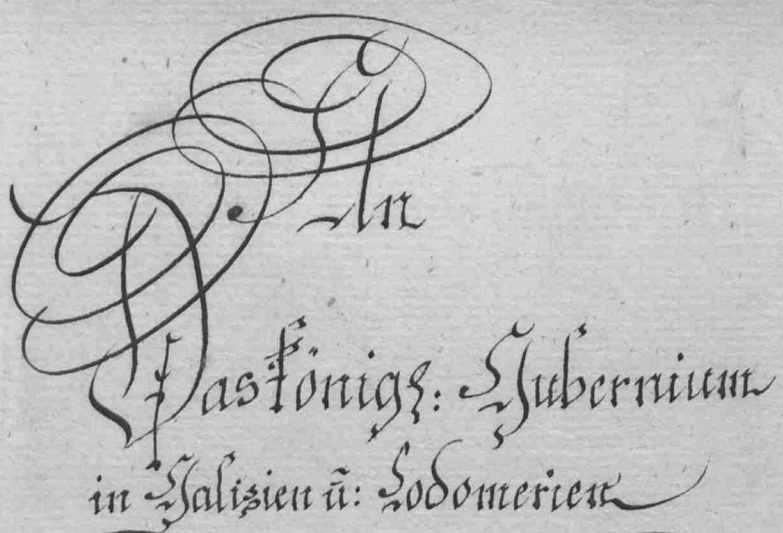 An
Das königl: Gubernium
in Galizien ū: Lodomerien